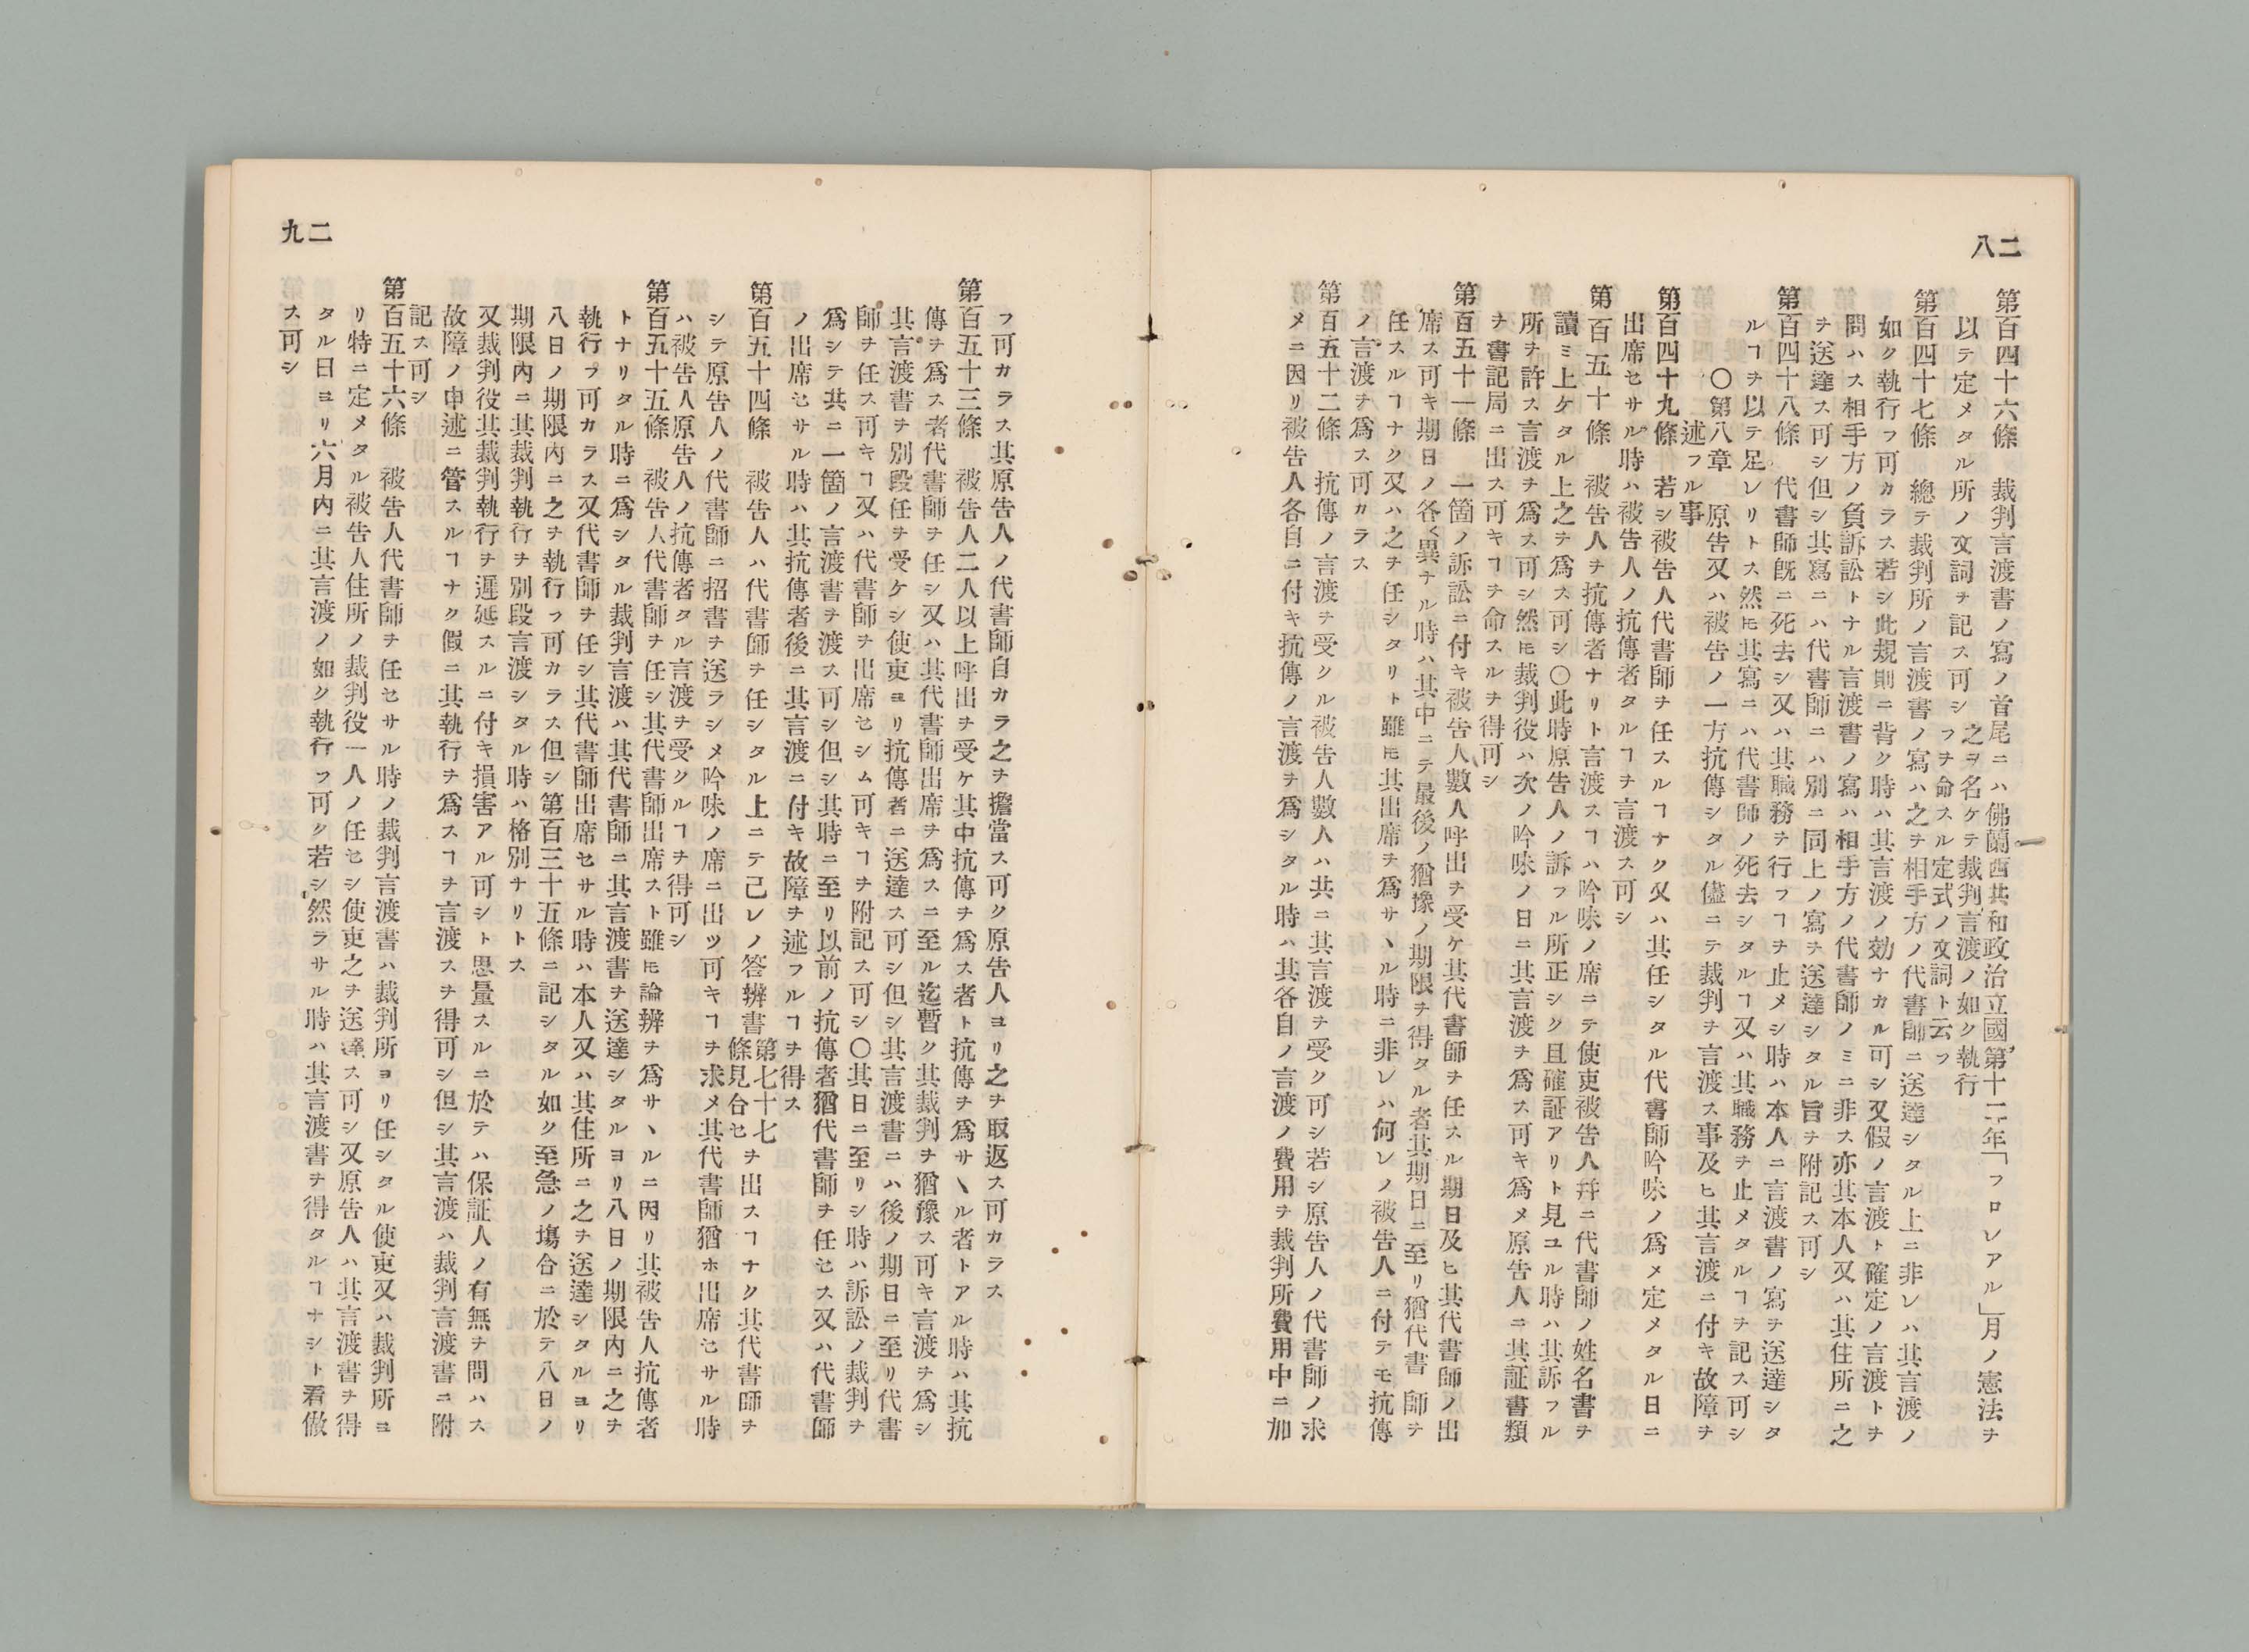 二八
第百四十六條　裁判言渡書ノ寫ノ首尾ニハ佛蘭西共和政治立國第十二年「フロレアル」月ノ憲法ヲ
以テ定メタル所ノ文詞ヲ記ス可シ之ヲ名ケテ裁判言渡ノ如ク執行
フヲ命スル定式ノ文詞ト云フ
第百四十七條　總テ裁判所ノ言渡書ノ寫ハ之ヲ相手方ノ代書師ニ送達シタル上ニ非レハ其言渡ノ
如ク執行フ可カラス若シ此規則ニ背ク時ハ其言渡ノ効ナカル可シ又假ノ言渡ト確定ノ言渡トヲ
問ハス相手方ノ負訴訟トナル言渡書ノ寫ハ相手方ノ代書師ノミニ非ス亦其本人又ハ其住所ニ之
ヲ送達ス可シ但シ其寫ニハ代書師ニハ別ニ同上ノ寫ヲ送達シタル旨ヲ附記ス可シ
第百四十八條　代書師既ニ死去シ又ハ其職務ヲ行フヿヲ止メシ時ハ本人ニ言渡書ノ寫ヲ送達シタ
ルヿヲ以テ足レリトス然𪜈其寫ニハ代書師ノ死去シタルヿ又ハ其職務ヲ止メタルヿヲ記ス可シ
〇第八章　原告又ハ被告ノ一方抗傳シタル儘ニテ裁判ヲ言渡ス事及ヒ其言渡ニ付キ故障ヲ
述フル事
第百四十九條　若シ被告人代書師ヲ任スルヿナク又ハ其任シタル代書師吟味ノ爲メ定メタル日ニ
出席セサル時ハ被告人ノ抗傳者タルヿヲ言渡ス可シ
第百五十條　被告人ヲ抗傳者ナリト言渡スヿハ吟味ノ席ニテ使吏被告人幷ニ代書師ノ姓名書ヲ
讀ミ上ケタル上之ヲ爲ス可シ〇此時原告人ノ訴フル所正シク且確証アリト見ユル時ハ其訴フル
所ヲ許ス言渡ヲ爲ス可シ然𪜈裁判役ハ次ノ吟味ノ日ニ其言渡ヲ爲ス可キ爲メ原告人ニ其証書類
ヲ書記局ニ出ス可キヿヲ命スルヲ得可シ
第百五十一條　一箇ノ訴訟ニ付キ被告人數人呼出ヲ受ケ其代書師ヲ任スル期日及ヒ其代書師ノ出
席ス可キ期日ノ各〻異ナル時ハ其中ニテ最後ノ猶豫ノ期限ヲ得タル者其期日ニ至リ猶代書師ヲ
任スルヿナク又ハ之ヲ任シタリト雖𪜈其出席ヲ爲サヽル時ニ非レハ何レノ被告人ニ付テモ抗傳
ノ言渡ヲ爲ス可カラス
第百五十二條　抗傳ノ言渡ヲ受クル被告人數人ハ共ニ其言渡ヲ受ク可シ若シ原告人ノ代書師ノ求
メニ因リ被告人各自ニ付キ抗傳ノ言渡ヲ爲シタル時ハ其各自ノ言渡ノ費用ヲ裁判所費用中ニ加
二九
フ可カラス其原告人ノ代書師自カラ之ヲ擔當ス可ク原告人ヨリ之ヲ取返ス可カラス
第百五十三條　被告人二人以上呼出ヲ受ケ其中抗傳ヲ爲ス者ト抗傳ヲ爲サヽル者トアル時ハ其抗
傳ヲ爲ス者代書師ヲ任シ又ハ其代書師出席ヲ爲スニ至ル迄暫ク其裁判ヲ猶豫ス可キ言渡ヲ爲シ
其言渡書ヲ別段任ヲ受ケシ使吏ヨリ抗傳者ニ送達ス可シ但シ其言渡書ニハ後ノ期日ニ至リ代書
師ヲ任ス可キヿ又ハ代書師ヲ出席セシム可キヿヲ附記ス可シ〇其日ニ至リシ時ハ訴訟ノ裁判ヲ
爲シテ其ニ一箇ノ言渡書ヲ渡ス可シ但シ其時ニ至リ以前ノ抗傳者猶代書師ヲ任セス又ハ代書師
ノ出席セサル時ハ其抗傳者後ニ其言渡ニ付キ故障ヲ述フルヿヲ得ス
第百五十四條　被告人ハ代書師ヲ任シタル上ニテ己レノ答辨書第七十七條見合セヲ出スヿナク其代書師ヲ
シテ原告人ノ代書師ニ招書ヲ送ラシメ吟味ノ席ニ出ツ可キヿヲ求メ其代書師猶ホ出席セサル時
ハ被告人原告人ノ抗傳者タル言渡ヲ受クルヿヲ得可シ
第百五十五條　被告人代書師ヲ任シ其代書師出席スト雖𪜈論辨ヲ爲サヽルニ因リ其被告人抗傳者
トナリタル時ニ爲シタル裁判言渡ハ其代書師ニ其言渡書ヲ送達シタルヨリ八日ノ期限內ニ之ヲ
執行フ可カラス又代書師ヲ任シ其代書師出席セサル時ハ本人又ハ其住所ニ之ヲ送達シタルヨリ
八日ノ期限內ニ之ヲ執行フ可カラス但シ第百三十五條ニ記シタル如ク至急ノ塲合ニ於テ八日ノ
期限內ニ其裁判執行ヲ別段言渡シタル時ハ格別ナリトス
又裁判役其裁判執行ヲ遲延スルニ付キ損害アル可シト思量スルニ於テハ保証人ノ有無ヲ問ハス
故障ノ申述ニ管スルヿナク假ニ其執行ヲ爲スヿヲ言渡スヲ得可シ但シ其言渡ハ裁判言渡書ニ附
記ス可シ
第百五十六條　被告人代書師ヲ任セサル時ノ裁判言渡書ハ裁判所ヨリ任シタル使吏又ハ裁判所ヨ
リ特ニ定メタル被告人住所ノ裁判役一人ノ任セシ使吏之ヲ送達ス可シ又原告人ハ其言渡書ヲ得
タル日ヨリ六月內ニ其言渡ノ如ク執行フ可ク若シ然ラサル時ハ其言渡書ヲ得タルヿナシト看做
ス可シ